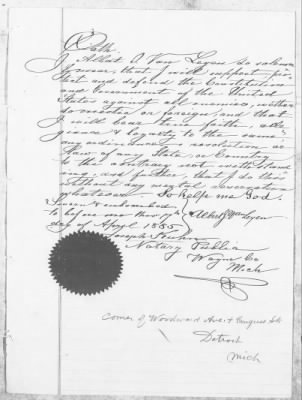 Oath.
I, Albert A Van Leyen do solemnly
swear, that I will support, pro-
tect and defend the Constitution
and Government of the United
States against all enemies, whether
domestic or foreign, and that
I will bear true faith, alle-
giance & loyalty to the same
any ordinance, resolution or
law of any State or Country
to the contrary notwithstand-
ing, and further, that I do this
without any mental reservation
whatsoever So helpe me God.
Sworn & subscribed
to before me this 17th
Albert A Van Leyen
day of April 1885
Joseph Kuhn
Notary Public
Wayne Co
Mich
Corner of Woodward Ave. & Congress St
Detroit
Mich